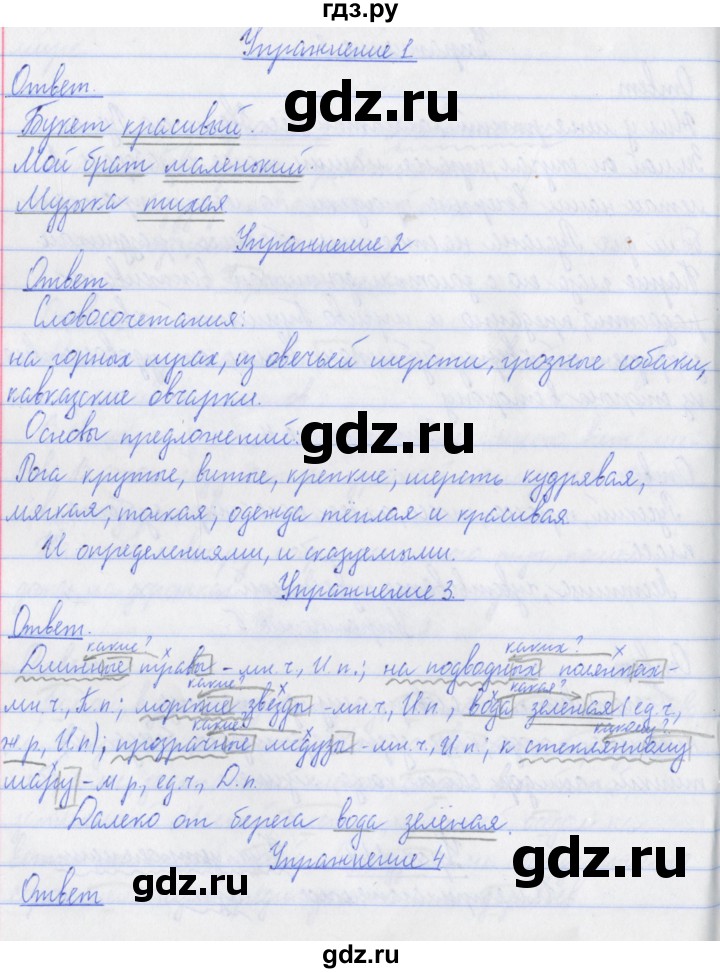 гдз.ру
Упражнение 1
Ответ.
Букет красивый.
gdz.ru
Мой брат маленький.
Музыка тихая
Упражнение 2
Ответ
Словосочетания:
на горных лугах, из овечьей шерсти, грозные собаки,
кавказские овчарки.
gdz.ru
Основы предложений:
Рога крутые, витые, крепкие; шерсть кудрявая,
мягкая, тонкая, одежда тёплая и красивая.
И определениями, и сказуемыми.
Упражнение 3.
Ответ.
какие? каких?
Длинные травы - мн.ч., И.п.; на подводных полянках -
какие? какая?
мн.ч., П.п; морские звёзды - мн.ч., И.п, вода зелёная (ед.ч,
какие? какому?
ж.р, И.п); прозрачные медузы - мн.ч., И.п.; к стеклянному
шару - м.р, ед.ч., Д.п.
Далеко от берега вода зелёная.
gdz.ru
Упражнение 4
gdz.ru
Ответ
gdz.ru